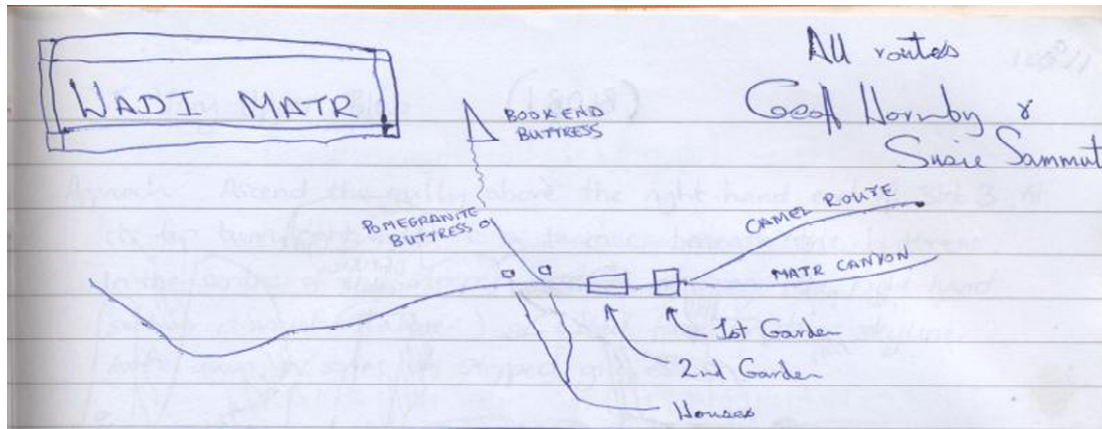 WADI MATR
All routes
Geoff Hornby &
Susie Sammut
BOOKEND
BUTTRESS
POMEGRANITE
BUTTRESS
CAMEL ROUTE
MATR CANYON
1st Garden
2nd Garden
Houses